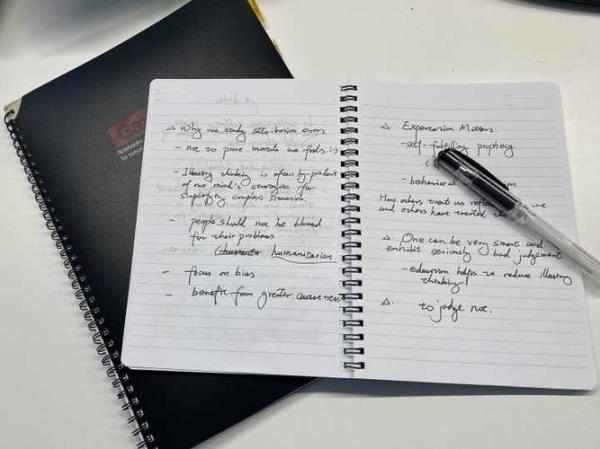 Ga
Notebooks
for tomo
△ Why we study attribution errors
- not to prove morals are fools :)
- Illusory thinking is often by product
of our mind's strategies for
simplifying complex
- people should not be blamed
for their problems
humanitarian
- focus on bias
- benefit from greater awareness
△ Expectation Matters.
- self-fulfilling prophecy
- behavioral
How others treat us
and others have treated
△ One can be very smart and
exhibit seriously bad judgement.
- education helps to reduce illusory
thinking!
△. to judge not.